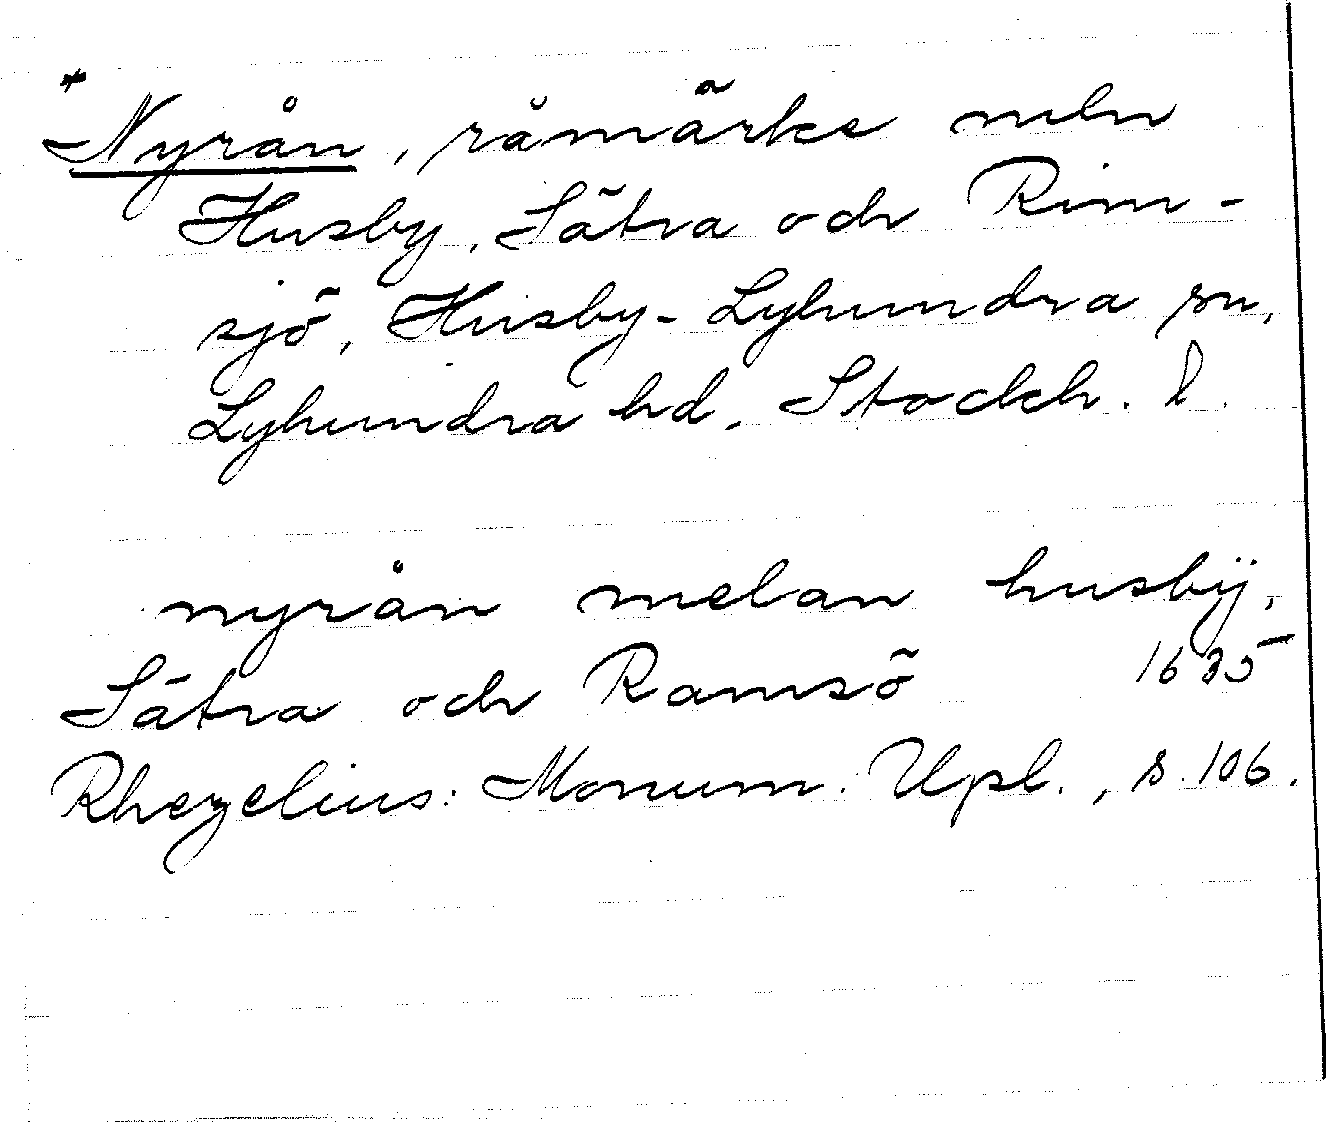 *Nyrån, råmärke mln
Husby, Sätra och Rim-
sjö, Husby-Lyhundra sn,
Lyhundra hd, Stockh. l.
nyrån melan husbÿ,
Sätra och Ramsö 1635
Rhezelius: Monum. Upl., s. 106.